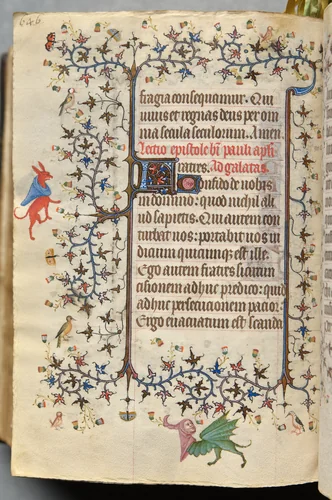 646
fragia consequamur. Qui
uiuis et regnas deus per om
nia secula seculorum. Amen
Lectio epistole bi pauli apli
Fratres. Ad galatas.
Confido de uobis
in domino: quod nichil ali
ud sapietis. Qui autem con
turbat uos: portabit uos in
dicium quicumq; est ille.
Ego autem fratres si circum
cisionem adhuc predico: quid
adhuc persecucionem pacior.
Ergo euacuatum est scanda